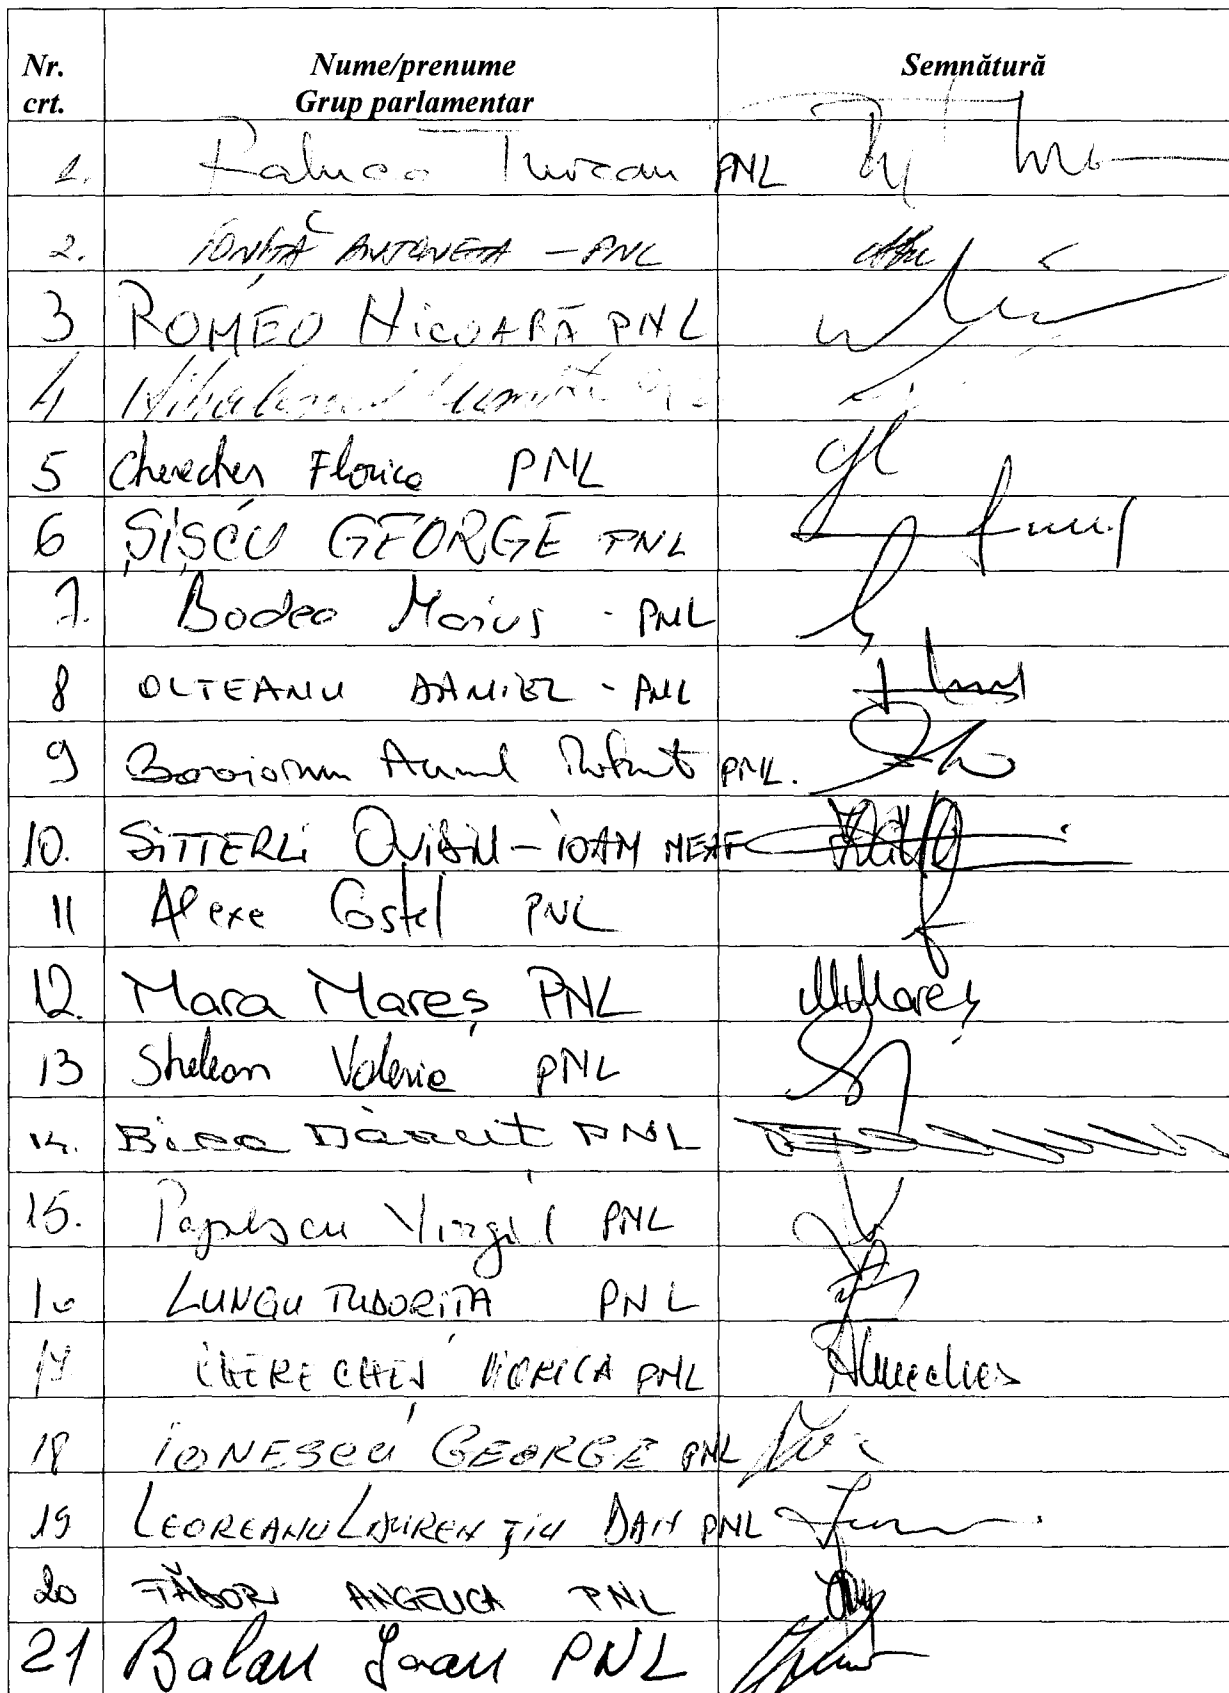 Nr. crt. Nume/prenume Grup parlamentar Semnătură
1. Raluca Turcan PNL
2. IONIȚĂ ANTONETA - PNL
3 ROMEO NICOARĂ PNL
4
5 Cherecheș Florica PNL
6 ȘIȘCU GEORGE PNL
7. Bodea Marius - PNL
8 OLTEANU DANIEL - PNL
9 Boroianu Aurel Robert PNL.
10. SITTERLI OVIDIU-IOAN NEAF
11 Alexe Costel PNL
12. Mara Mareș PNL MMareș
13 Steluan Valeria PNL
14. Bica Dănuț PNL
15. Popescu Virgil PNL
16 LUNGU TUDORIȚA PNL
17 CHERECHEȘ VIORICA PNL
18 IONESCU GEORGE PNL
19 LEOREANU LAURENȚIU DAN PNL
20 FĂDOR ANGELICA PNL
21 Balan Ioan PNL